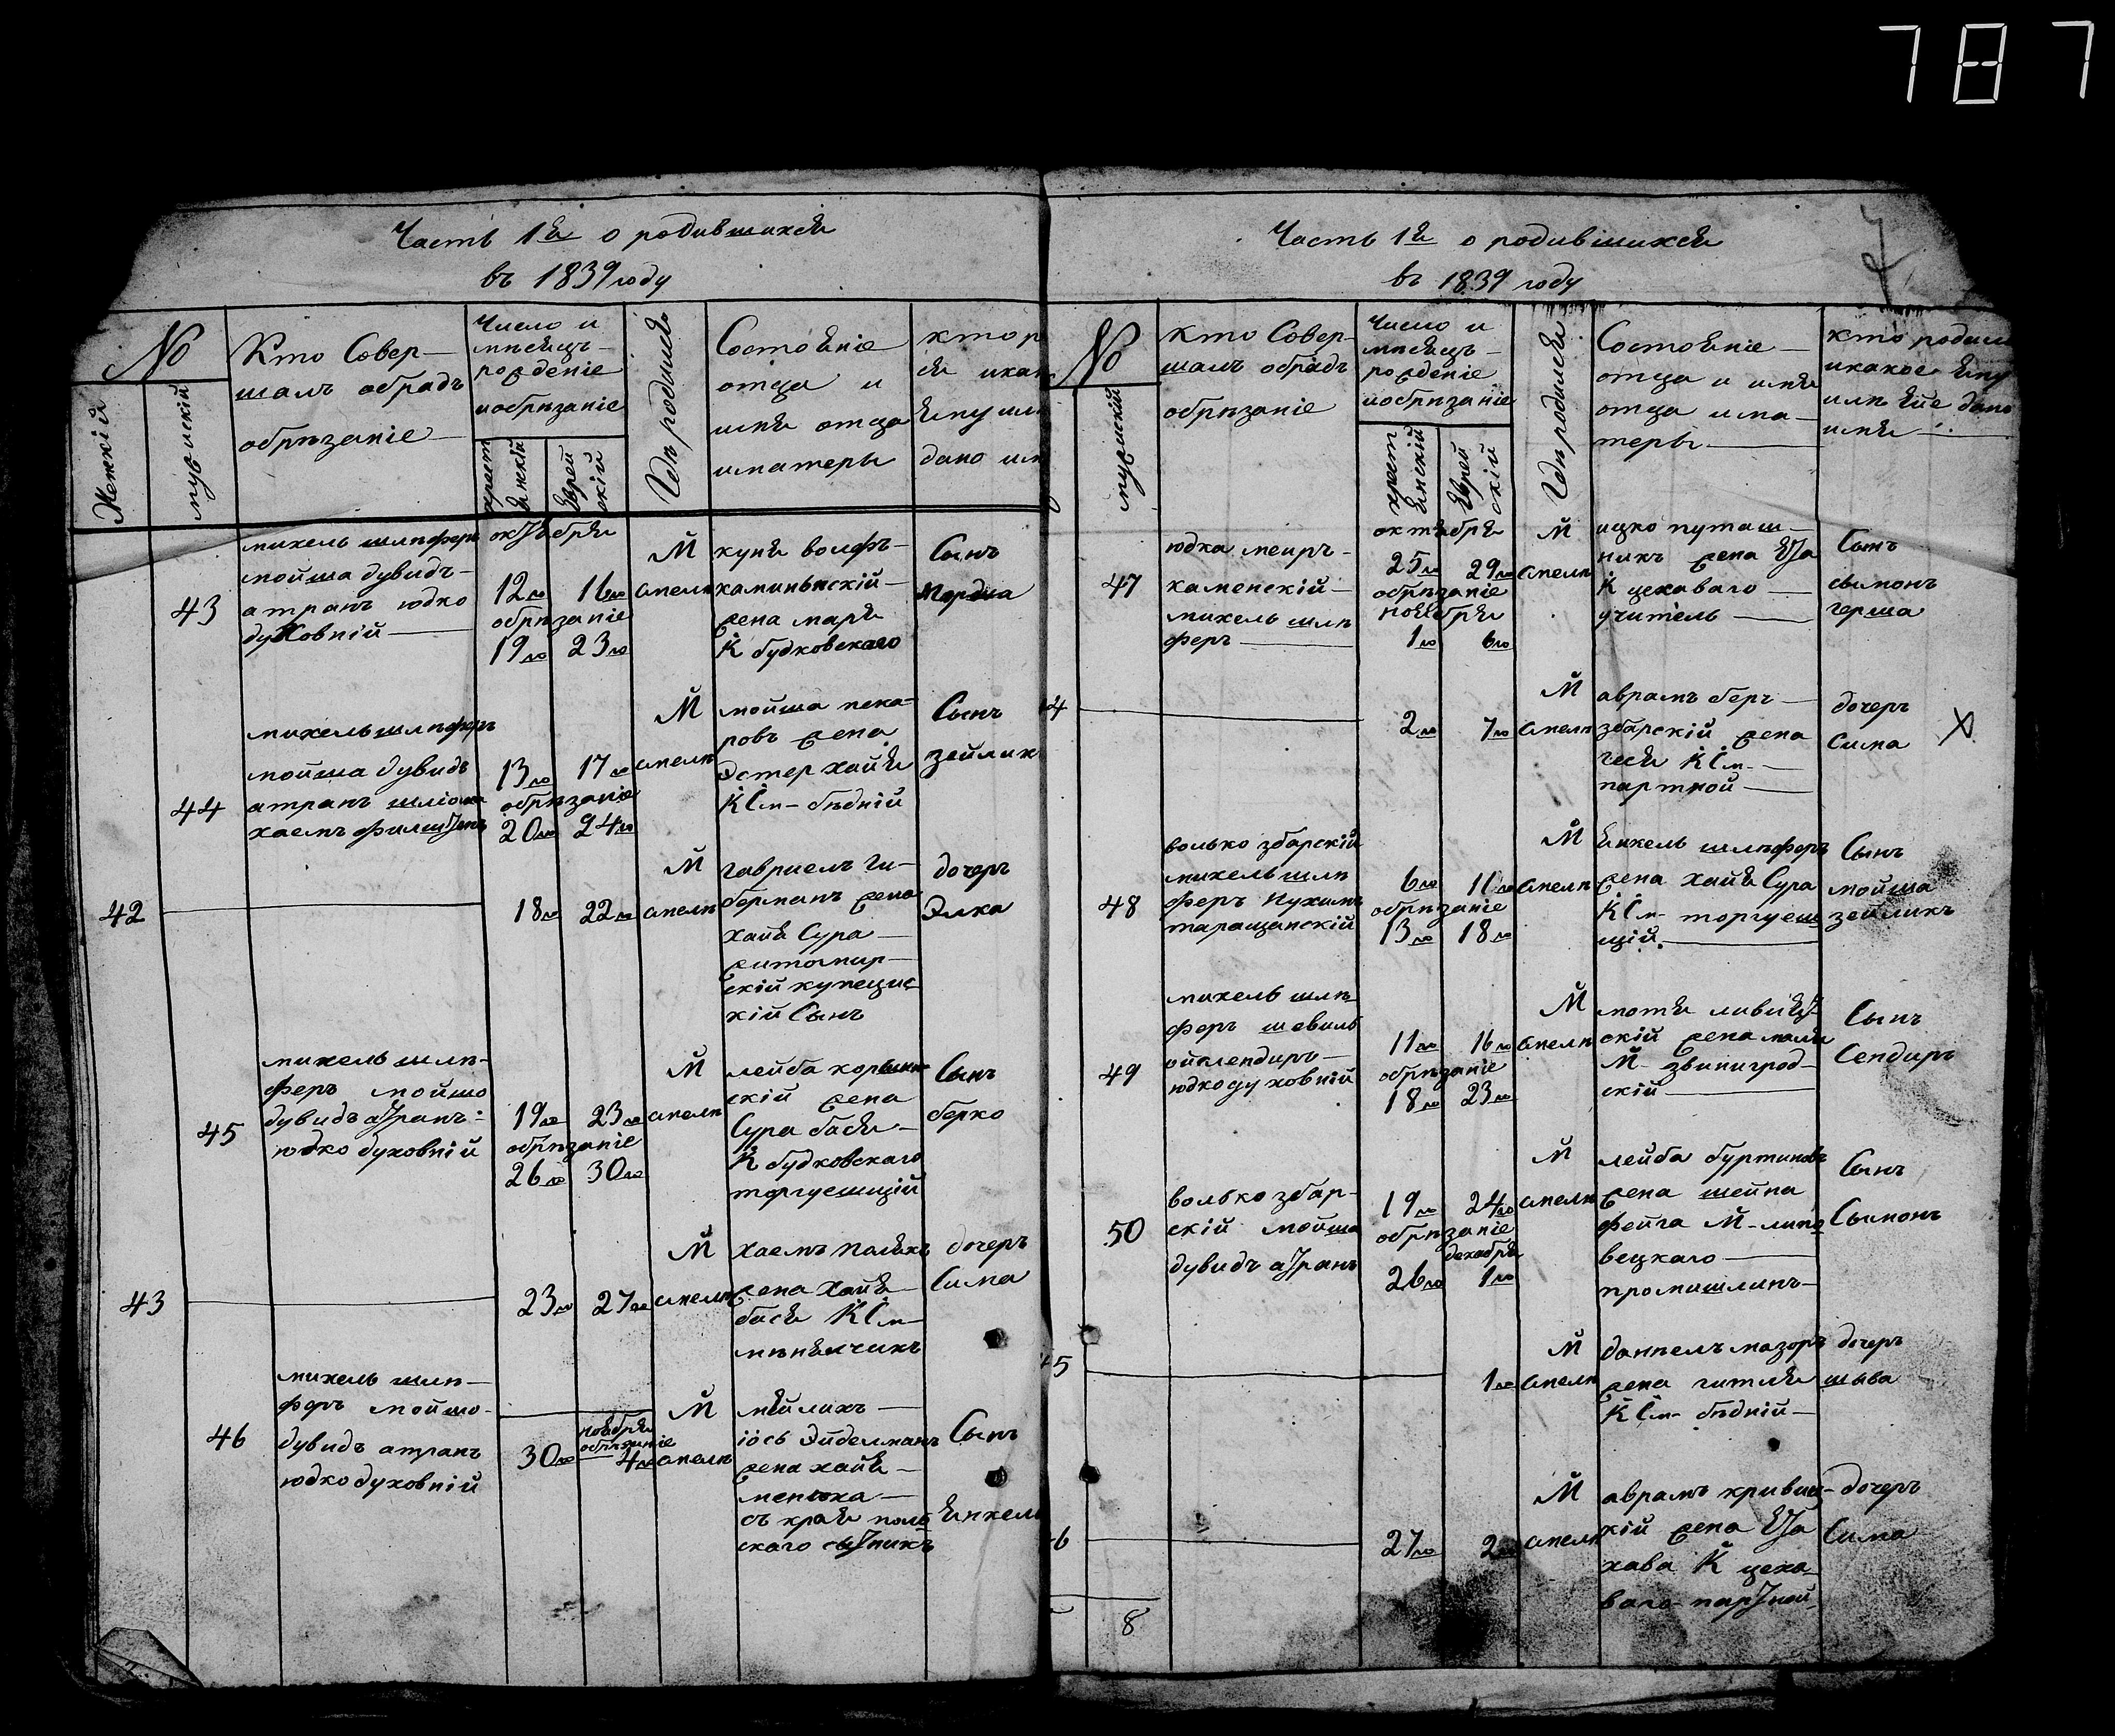 787
Часть 1я о родившихся
въ 1839 году
№
Женскій
мужискій
Кто Совер-
шалъ обрадъ
обрѣзаніе
Число и
мѣсяцъ
рожденіе
иобрѣзаніе
хрест
янскій
Еврей
скій
Гдѣ родился
Состояніе
отца и
имя отца
иматеры
кто р
ся ика
Ему или
дано им
43
михель шлѣферъ
мойша дувидъ
атранъ юдко
духовній
октября
12го 16го
обрѣзаніе
19го 23го
М
амели
куня волфъ
жена маря
К будковскаго
Сынъ
44
михель шлѣферъ
мойша дувидъ
атранъ
хаемъ
13го 17го
обрѣзаніе
20го 24го
М
амели
мойша пека-
ровъ жена
Эстер хайя
К См бѣдній
Сынъ
зейлик
42
18го 22го
М
амели
гавриелъ ги-
берманъ жена
хая Сура
житомир-
скій купецис
кій Сынъ
дочеръ
Элка
45
михель шлѣ-
феръ мойшо
дувидъ атранъ
юдко духовній
19го 23го
обрѣзаніе
26го 30го
М
амели
лейба
скій жена
Сура бася
К будковскаго
торгуещицій
Сынъ
берко
43
23го 27го
М
амели
хаемъ полякъ
жена Хая
бася К См
мѣнянчикъ
дочеръ
Сима
46
михель шлѣ-
феръ мойшо
дувидъ атранъ
юдко духовній
ноября
обрѣзаніе
30го 4го
М
амели
мейлихъ
іось Эйделманъ
жена хая
менюха
съ края поль
скаго
Сынъ
Янкель
Часть 1я о родившихся
въ 1839 году
7
№
мужискій
Кто Совер-
шалъ обрадъ
обрѣзаніе
Число и
мѣсяцъ
рожденіе
иобрѣзаніе
хрест
янскій
Еврей
скій
Гдѣ родился
Состояніе
отца и имя
отца има-
теры
Кто родилс
икакое Ему
или Ейе дано
имя
47
юдка меиръ
каменскій
михель шлѣ
феръ
октября
25го 29го
обрѣзаніе
ноября
1го 6го
М
амели
ицко путаш-
никъ жена Ета
К цехаваго
учитель
Сынъ
сымонъ
герша
4
2го 7го
М
амели
аврамъ беръ
збарскій жена
геся К См
партной
дочеръ
Сима
X
48
волько збарскій
михель шлѣ
феръ Нухимъ
таращанскій
6го 11го
обрѣзаніе
13го 18го
М
амели
Янкель шлѣферъ
жена хая Сура
К См торгуещ
щій
Сынъ
мойша
зейликъ
49
михель шлѣ
феръ шевиль
ойлендиръ
юдко духовній
11го 16го
обрѣзаніе
18го 23го
М
амели
мотя
скій жена маля
М звинигрод-
скій
Сынъ
Сендиръ
50
волько збар-
скій мойша
дувидъ атранъ
19го 24го
обрѣзаніе
декабря
26го 1го
М
амели
лейба буртиновъ
жена шейна
фейга М липо
вецкаго
промишлинъ
Сынъ
Сымонъ
5
1го
М
амели
даниелъ мазоръ
жена гитля
К См бѣдній
дочеръ
шыва
6
27го 2го
М
амели
аврамъ кривиц-
кій жена Ета
хава К цеха
ваго партной
дочеръ
Сима
8